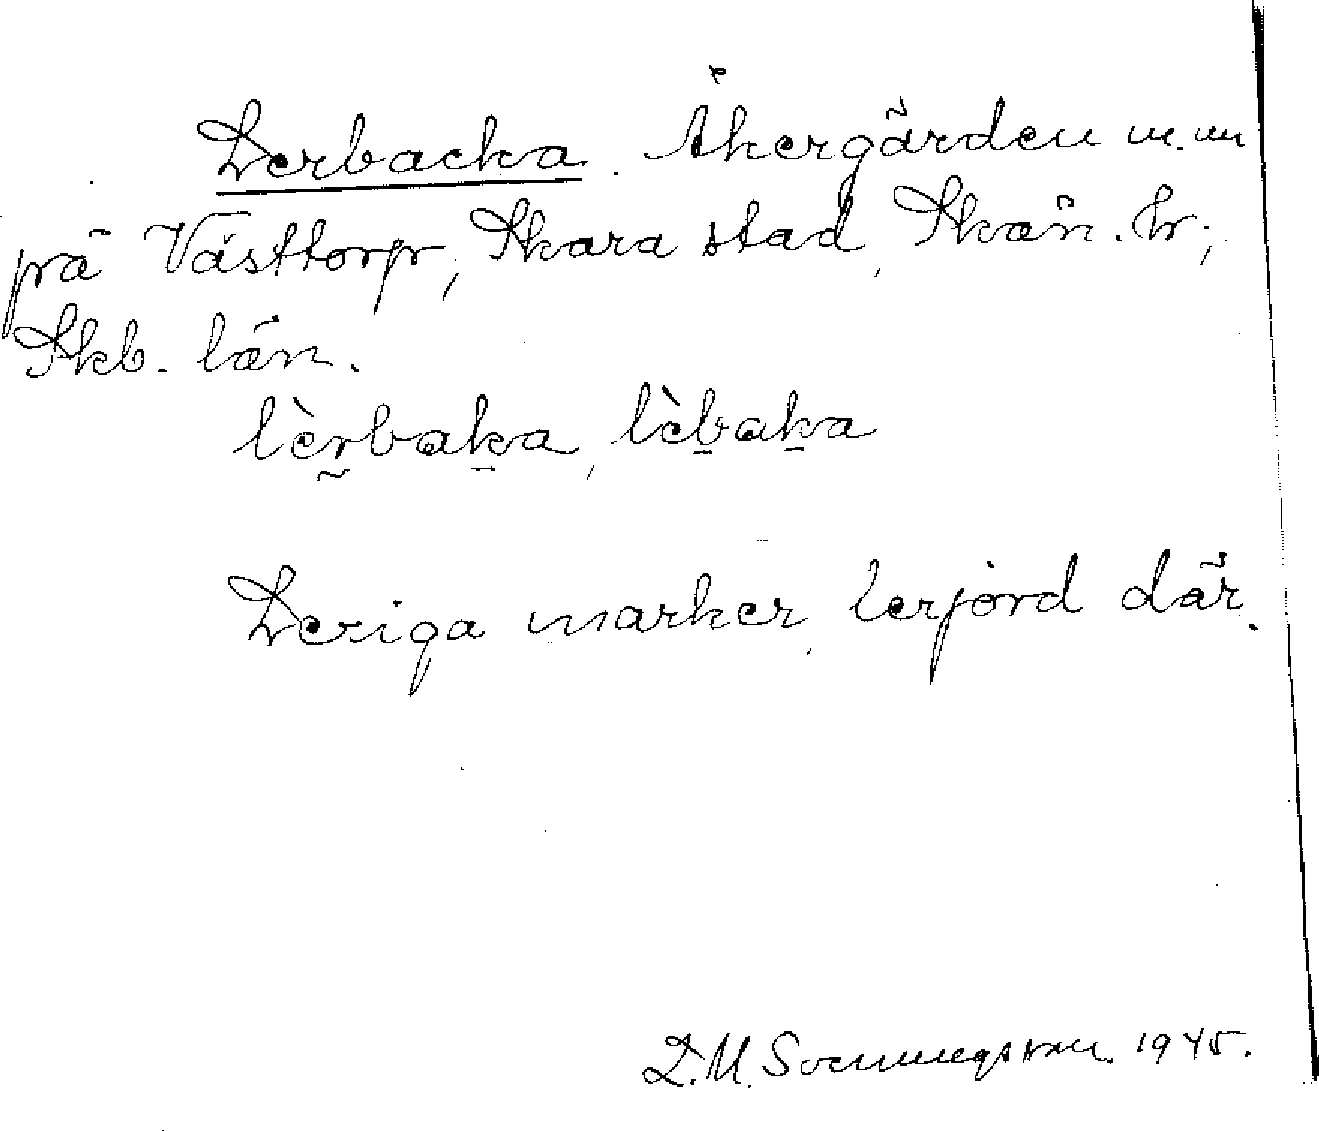 Lerbacka. Åkergärden m.m
på Västtorp, Skara stad, Skån. hr;
Skb. län.
lèr̰baḵa, lèḇaḵa
Leriga marker, lerjord där.
L.M. Svenungsson. 1945.